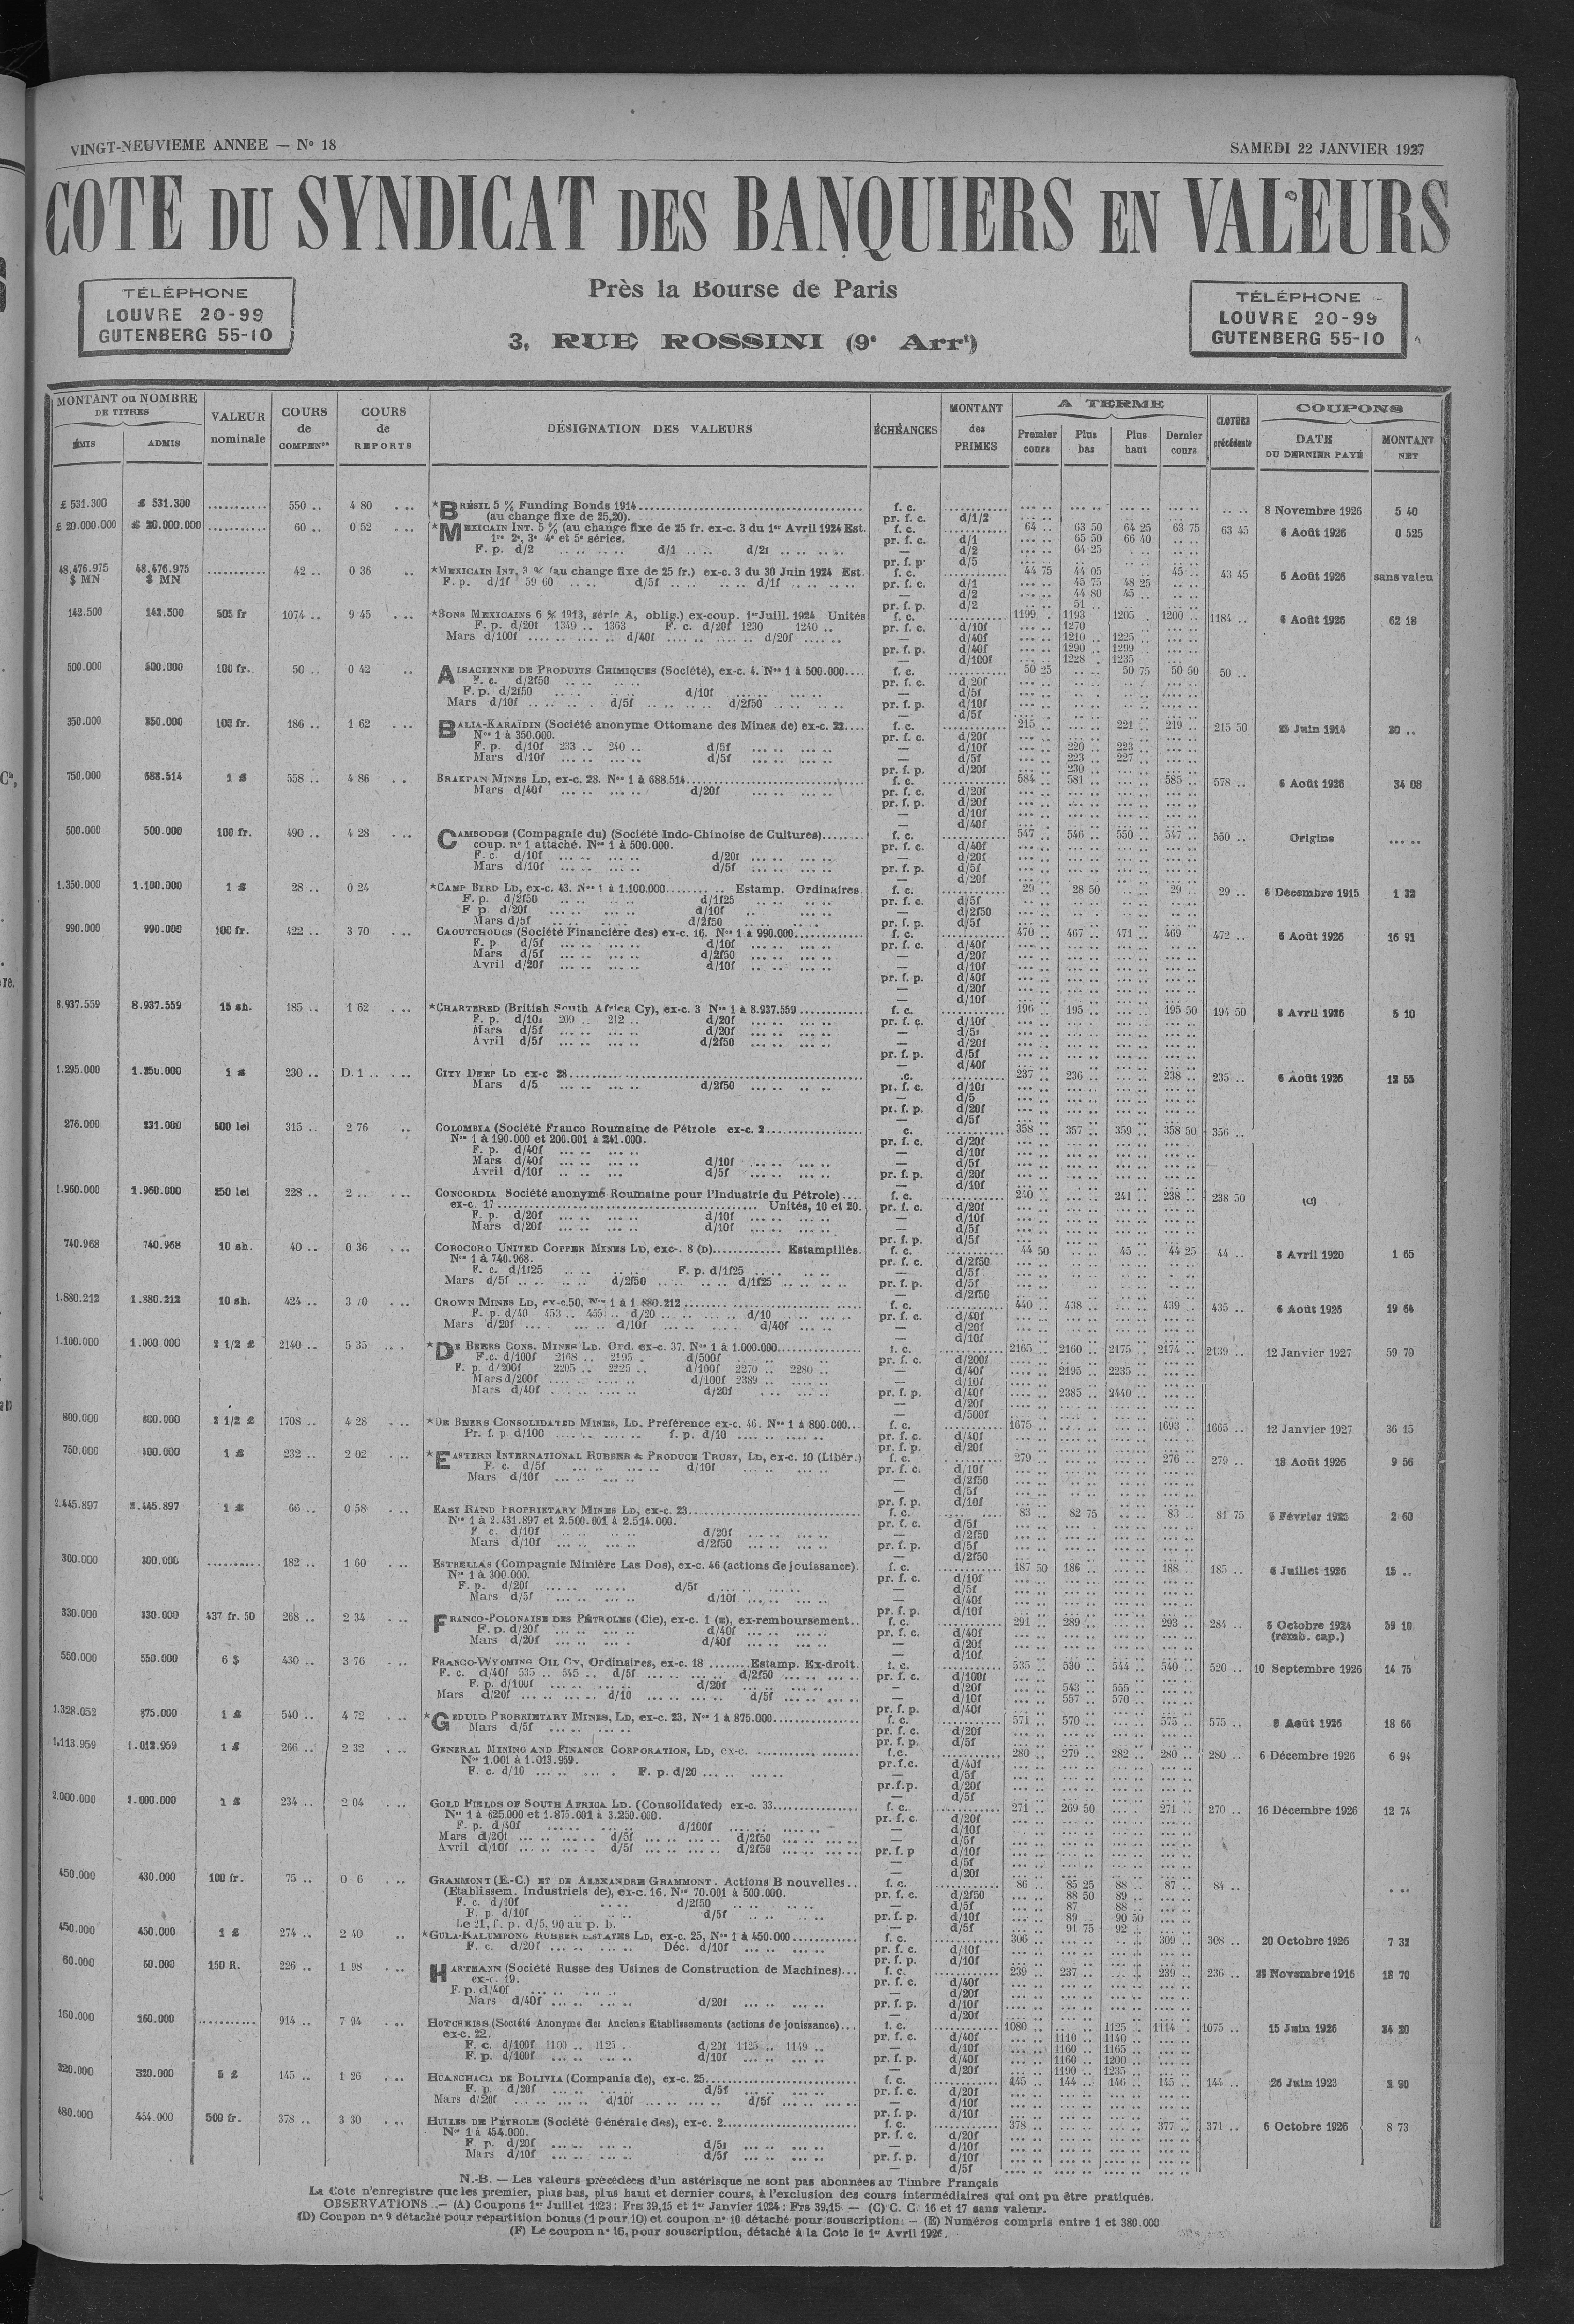 VINGT-NEUVIEME ANNEE — N° 18
SAMEDI 22 JANVIER 1927
COTE DU SYNDICAT DES BANQUIERS EN VALEURS
Près la Bourse de Paris
3, RUE ROSSINI (9e Arrt)
TÉLÉPHONE
LOUVRE 20-99
GUTENBERG 55-10
TÉLÉPHONE
LOUVRE 20-99
GUTENBERG 55-10
MONTANT ou NOMBRE DE TITRES
ÉMIS ADMIS
VALEUR nominale
COURS de COMPENon
COURS de REPORTS
DÉSIGNATION DES VALEURS
ÉCHÉANCES
MONTANT des PRIMES
A TERME
Premier cours Plus bas Plus haut Dernier cours
CLOTURE précédente
COUPONS
DATE DU DERNIER PAYÉ
MONTANT NET
£ 531.300 £ 531.300 .......... 550 .. 4 80 *BRÉSIL 5 % Funding Bonds 1914 f. c. 8 Novembre 1926 5 40
(au change fixe de 25,20). pr. f. c. d/1/2
£ 20.000.000 £ 20.000.000 .......... 60 .. 0 52 *MEXICAIN INT. 5 % (au change fixe de 25 fr. ex-c. 3 du 1er Avril 1924 Est. f. c. 64 .. 63 50 64 25 63 75 63 45 6 Août 1926 0 525
1re 2e, 3e 4e et 5e séries. pr. f. c. d/1 65 50 66 40
F. p. d/2 d/1 d/2f — d/2 64 25
pr. f. p. d/5
48.476.975 $ MN 48.476.975 $ MN .......... 42 .. 0 36 *MEXICAIN INT. 3 % (au change fixe de 25 fr.) ex-c. 3 du 30 Juin 1924 Est. f. c. 44 75 44 05 45 .. 43 45 6 Août 1926 sans valeu
F. p. d/1f 59 60 d/5f d/1f pr. f. c. d/1 45 75 48 25
— d/2 44 80 45 ..
pr. f. p. d/2 51 ..
142.500 142.500 505 fr 1074 .. 9 45 *BONS MEXICAINS 6 % 1913, série A, oblig.) ex-coup. 1er Juill. 1924 Unités f. c. 1199 1193 1205 .. 1200 .. 1184 .. 6 Août 1926 62 18
F. p. d/20f 1349 .. 1363 F. c. d/20f 1230 1240 .. pr. f. c. d/10f 1270
Mars d/100f d/40f d/20f — d/40f 1210 .. 1225 ..
pr. f. p. d/40f 1290 .. 1299
— d/100f 1228 . 1235
500.000 500.000 100 fr. 50 .. 0 42 ALSACIENNE DE PRODUITS CHIMIQUES (Société), ex-c. 4. Nos 1 à 500.000 f. c. 50 25 50 75 50 50 50 ..
F. c. d/2f50 pr. f. c. d/20f
F. p. d/2f50 d/10f — d/5f
Mars d/10f d/5f d/2f50 pr. f. p. d/10f
— d/5f
350.000 350.000 100 fr. 186 .. 1 62 BALIA-KARAÏDIN (Société anonyme Ottomane des Mines de) ex-c. 22 f. c. 215 221 .. 219 .. 215 50 25 Juin 1914 20 ..
Nos 1 à 350.000. pr. f. c. d/20f
F. p. d/10f 233 .. 240 .. d/5f — d/10f 220 .. 223 ..
Mars d/10f d/5f — d/5f 223 .. 227 ..
pr. f. p. d/20f 230 ..
750.000 688.514 1 £ 558 .. 4 86 BRAKPAN MINES LD, ex-c. 28. Nos 1 à 688.514 f. c. 584 .. 581 .. 585 .. 578 .. 6 Août 1926 34 08
Mars d/40f d/20f pr. f. c. d/20f
pr. f. p. d/20f
— d/10f
— d/40f
500.000 500.000 100 fr. 490 .. 4 28 CAMBODGE (Compagnie du) (Société Indo-Chinoise de Cultures) f. c. 547 .. 546 .. 550 .. 547 .. 550 .. Origine
coup. n° 1 attaché. Nos 1 à 500.000. pr. f. c. d/40f
F. c. d/10f d/20f — d/20f
Mars d/10f d/5f pr. f. p. d/5f
— d/20f
1.350.000 1.100.000 1 £ 28 .. 0 24 *CAMP BIRD LD, ex-c. 43. Nos 1 à 1.100.000 Estamp. Ordinaires. f. c. 29 .. 28 50 29 .. 29 .. 6 Décembre 1915 1 32
F. p. d/2f50 d/1f25 pr. f. c. d/5f
F p. d/20f d/10f — d/2f50
Mars d/5f d/2f50 pr. f. p. d/5f
990.000 990.000 100 fr. 422 .. 3 70 CAOUTCHOUCS (Société Financière des) ex-c. 16. Nos 1 à 990.000 f. c. 470 .. 467 .. 471 .. 469 472 .. 6 Août 1926 16 91
F. p. d/5f d/10f pr. f. c. d/40f
Mars d/5f d/2f50 — d/20f
Avril d/20f d/10f — d/10f
pr. f. p. d/40f
— d/20f
— d/10f
8.937.559 8.937.559 15 sh. 185 .. 1 62 *CHARTERED (British South Africa Cy), ex-c. 3 Nos 1 à 8.937.559 f. c. 196 .. 195 .. 195 50 194 50 8 Avril 1926 5 10
F. p. d/10f 209 212 .. d/20f pr. f. c. d/10f
Mars d/5f d/20f — d/5f
Avril d/5f d/2f50 — d/20f
pr. f. p. d/5f
— d/40f
1.295.000 1.250.000 1 £ 230 .. D. 1 .. CITY DEEP LD ex-c 28 .c. 237 .. 236 .. 238 .. 235 .. 6 Août 1926 12 55
Mars d/5 d/2f50 pr. f. c. d/10f
— d/5
pr. f. p. d/20f
— d/5f
276.000 231.000 500 lei 315 .. 2 76 COLOMBIA (Société Franco Roumaine de Pétrole ex-c. 2 c. 358 .. 357 .. 359 .. 358 50 356 ..
Nos 1 à 190.000 et 200.001 à 241.000. pr. f. c. d/20f
F. p. d/40f — d/10f
Mars d/40f d/10f — d/5f
Avril d/10f d/5f pr. f. p. d/20f
— d/10f
1.960.000 1.960.000 250 lei 228 .. 2 .. CONCORDIA Société anonyme Roumaine pour l'Industrie du Pétrole) f. c. 240 .. 241 .. 238 .. 238 50 (a)
ex-c. 17 Unités, 10 et 20. pr. f. c. d/20f
F. p. d/20f d/10f — d/10f
Mars d/20f d/10f — d/5f
pr. f. p. d/5f
740.968 740.968 10 sh. 40 .. 0 36 COROCORO UNITED COPPER MINES LD, exc-. 8 (D) Estampillés. f. c. 44 50 45 .. 44 25 44 .. 8 Avril 1920 1 65
Nos 1 à 740.968. pr. f. c. d/2f50
F. c. d/1f25 F. p. d/1f25 — d/5f
Mars d/5f d/2f50 d/1f25 pr. f. p. d/5f
— d/2f50
1.880.212 1.880.212 10 sh. 424 .. 3 70 CROWN MINES LD, ex-c.50. Nos 1 à 1.880.212 f. c. 440 .. 438 .. 439 .. 435 .. 6 Août 1926 19 64
F. p. d/40 453 .. 455 .. d/20 d/10 pr. f. c. d/40f
Mars d/20f d/10f d/40f — d/20f
— d/10f
1.100.000 1.000.000 2 1/2 £ 2140 .. 5 35 *DE BEERS CONS. MINES LD. Ord. ex-c. 37. Nos 1 à 1.000.000 f. c. 2165 .. 2160 .. 2175 .. 2174 .. 2139 .. 12 Janvier 1927 59 70
F.c. d/100f 2168 .. 2195 d/500f pr. f. c. d/200f
F. p. d/200f 2205 .. 2225 .. d/100f 2270 .. 2280 .. — d/40f 2195 .. 2235 ..
Mars d/200f d/100f 2389 .. — d/10f
Mars d/40f d/20f pr. f. p. d/40f 2385 .. 2440 ..
— d/20f
— d/500f
800.000 800.000 2 1/2 £ 1708 .. 4 28 *DE BEERS CONSOLIDATED MINES, LD. Préférence ex-c. 46. Nos 1 à 800.000 f. c. 1675 .. 1693 .. 1665 .. 12 Janvier 1927 36 15
Pr. f. p. d/100 f. p. d/10 pr. f. c. d/40f
pr. f. p. d/20f
750.000 400.000 1 £ 232 .. 2 02 *EASTERN INTERNATIONAL RUBBER & PRODUCE TRUST, LD, ex-c. 10 (Libér.) f. c. 279 .. 276 .. 279 .. 18 Août 1926 9 56
F. c. d/5f d/10f pr. f. c. d/10f
Mars d/10f — d/2f50
— d/5f
pr. f. p. d/10f
2.445.897 2.445.897 1 £ 66 .. 0 58 EAST RAND PROPRIETARY MINES LD, ex-c. 23 f. c. 83 .. 82 75 83 .. 81 75 5 Février 1925 2 60
Nos 1 à 2.431.897 et 2.500.001 à 2.514.000. pr. f. c. d/5f
F. c. d/10f d/20f — d/2f50
Mars d/10f d/2f50 pr. f. p. d/5f
— d/2f50
300.000 300.000 .......... 182 .. 1 60 ESTRELLAS (Compagnie Minière Las Dos), ex-c. 46 (actions de jouissance). f. c. 187 50 186 .. 188 .. 185 .. 6 Juillet 1926 15 ..
Nos 1 à 300.000. pr. f. c. d/10f
F. p. d/20f d/5f — d/5f
Mars d/5f d/10f — d/40f
pr. f. p. d/10f
330.000 330.000 437 fr. 50 268 .. 2 34 FRANCO-POLONAISE DES PÉTROLES (Cie), ex-c. 1 (E), ex-remboursement f. c. 291 .. 289 .. 293 .. 284 .. 6 Octobre 1924 59 10
F. p. d/20f d/40f pr. f. c. d/40f (remb. cap.)
Mars d/20f d/40f — d/20f
— d/10f
550.000 550.000 6 $ 430 .. 3 76 FRANCO-WYOMING OIL Cy, Ordinaires, ex-c. 18 Estamp. Ex-droit. f. c. 535 .. 530 .. 544 .. 540 .. 520 .. 10 Septembre 1926 14 75
F. c. d/40f 535 .. 545 .. d/5f d/2f50 pr. f. c. d/100f
F. p. d/100f d/20f — d/20f 543 .. 555 ..
Mars d/20f d/10 d/5f — d/10f 557 .. 570 ..
pr. f. p. d/40f
1.328.052 875.000 1 £ 540 .. 4 72 *GEDULD PROPRIETARY MINES, LD, ex-c. 23. Nos 1 à 875.000 f. c. 571 .. 570 .. 575 .. 575 .. 6 Août 1926 18 66
Mars d/5f pr. f. c. d/20f
pr. f. p. d/5f
1.113.959 1.012.959 1 £ 266 .. 2 32 GENERAL MINING AND FINANCE CORPORATION, LD, ex-c. f.c. 280 .. 279 .. 282 .. 280 .. 280 .. 6 Décembre 1926 6 94
Nos 1.001 à 1.013.959. pr.f.c. d/40f
F. c. d/10 F. p. d/20 — d/5f
pr.f.p. d/20f
— d/5f
2.000.000 2.000.000 1 £ 234 .. 2 04 GOLD FIELDS OF SOUTH AFRICA LD. (Consolidated) ex-c. 33 f. c. 271 .. 269 50 271 .. 270 .. 16 Décembre 1926 12 74
Nos 1 à 625.000 et 1.875.001 à 3.250.000. pr. f. c. d/20f
F. p. d/40f d/100f — d/10f
Mars d/20f d/5f d/2f50 — d/5f
Avril d/10f d/5f d/2f50 pr. f. p d/10f
— d/5f
— d/20f
450.000 430.000 100 fr. 75 .. 0 6 GRAMMONT (E.-C.) ET DE ALEXANDRE GRAMMONT. Actions B nouvelles f. c. 86 .. 85 25 88 .. 87 .. 84 ..
(Etablissem. Industriels de), ex-c. 16. Nos 70.001 à 500.000. pr. f. c. d/2f50 88 50 89 ..
F. c. d/10f d/2f50 — d/5f 87 88 ..
F. p. d/10f d/5f pr. f. p. d/10f 89 90 50
Le 21, f. p. d/5, 90 au p. b. — d/5f 91 75 92 ..
450.000 450.000 1 £ 274 .. 2 40 *GULA-KALUMPONG RUBBER ESTATES LD, ex-c. 25, Nos 1 à 450.000 f. c. 306 .. 309 .. 308 .. 20 Octobre 1926 7 32
F. c. d/20f Déc. d/10f pr. f. c. d/10f
pr. f. p. d/10f
60.000 60.000 150 R. 226 .. 1 98 HARTMANN (Société Russe des Usines de Construction de Machines) f. c. 239 .. 237 .. 239 .. 236 .. 25 Novembre 1916 18 70
ex-c. 19. pr. f. c. d/40f
F. p. d/40f — d/20f
Mars d/40f d/20f pr. f. p. d/10f
— d/20f
160.000 160.000 .......... 914 .. 7 94 HOTCHKISS (Société Anonyme des Anciens Etablissements (actions de jouissance) f. c. 1080 .. 1125 .. 1114 . 1075 .. 15 Juin 1926 34 20
ex-c. 22. pr. f. c. d/40f 1110 .. 1140 ..
F. c. d/100f 1100 .. 1125 . d/20f 1125 .. 1149 .. — d/10f 1160 .. 1165 ..
F. p. d/100f d/10f pr. f. p. d/40f 1160 .. 1200 ..
— d/20f 1190 .. 1235 ..
320.000 320.000 5 £ 145 .. 1 26 HUANCHACA DE BOLIVIA (Compania de), ex-c. 25 f. c. 145 .. 144 .. 146 .. 145 .. 144 .. 26 Juin 1923 2 90
F. p. d/20f d/5f pr. f. c. d/20f
Mars d/20f d/10f d/5f — d/10f
pr. f. p. d/10f
480.000 454.000 500 fr. 378 .. 3 30 HUILES DE PÉTROLE (Société Générale des), ex-c. 2 f. c. 378 .. 377 .. 371 .. 6 Octobre 1926 8 73
Nos 1 à 454.000. pr. f. c. d/20f
F p. d/20f d/5f — d/10f
Mars d/10f d/5f pr. f. p. d/10f
— d/5f
N.-B. — Les valeurs précédées d'un astérisque ne sont pas abonnées au Timbre Français
La Cote n'enregistre que les premier, plus bas, plus haut et dernier cours, à l'exclusion des cours intermédiaires qui ont pu être pratiqués.
OBSERVATIONS .— (A) Coupons 1er Juillet 1923 : Frs 39,15 et 1er Janvier 1924 : Frs 39,15 — (C) C. C. 16 et 17 sans valeur.
(D) Coupon n° 9 détaché pour répartition bonus (1 pour 10) et coupon n° 10 détaché pour souscription. — (E) Numéros compris entre 1 et 380.000
(F) Le coupon n° 16, pour souscription, détaché à la Cote le 1er Avril 1926.